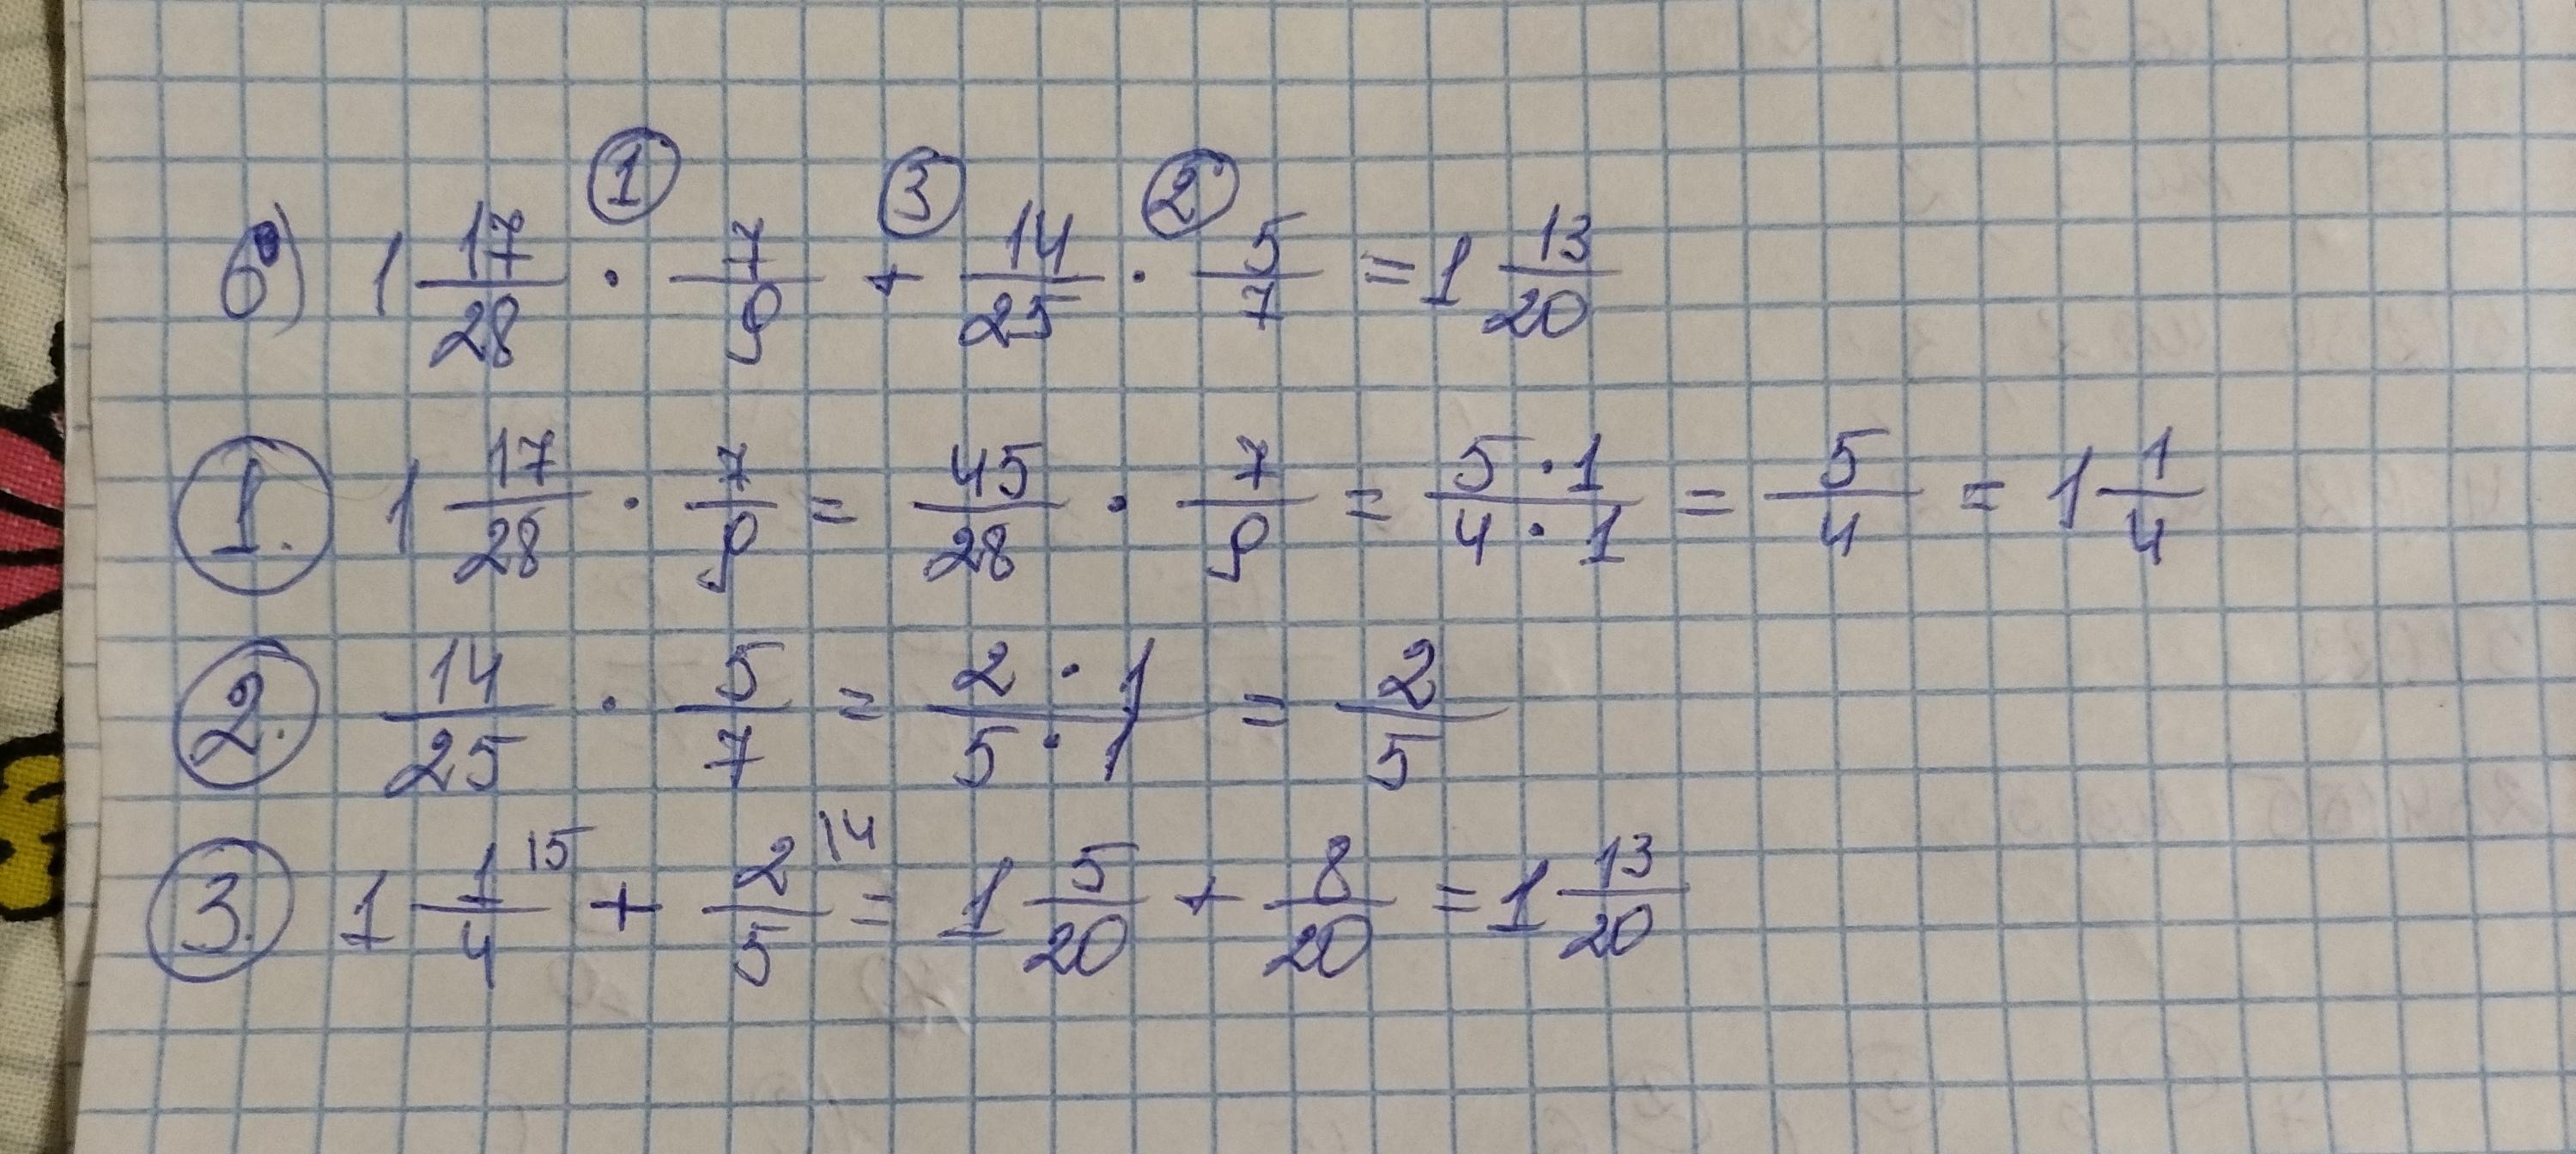 ① ③ ②
б) 1 17/28 · 7/9 + 14/25 · 5/7 = 1 13/20
①. 1 17/28 · 7/9 = 45/28 · 7/9 = 5·1/4·1 = 5/4 = 1 1/4
②. 14/25 · 5/7 = 2·1/5·1 = 2/5
③. 1 1/4 ^15 + 2/5 ^14 = 1 5/20 + 8/20 = 1 13/20